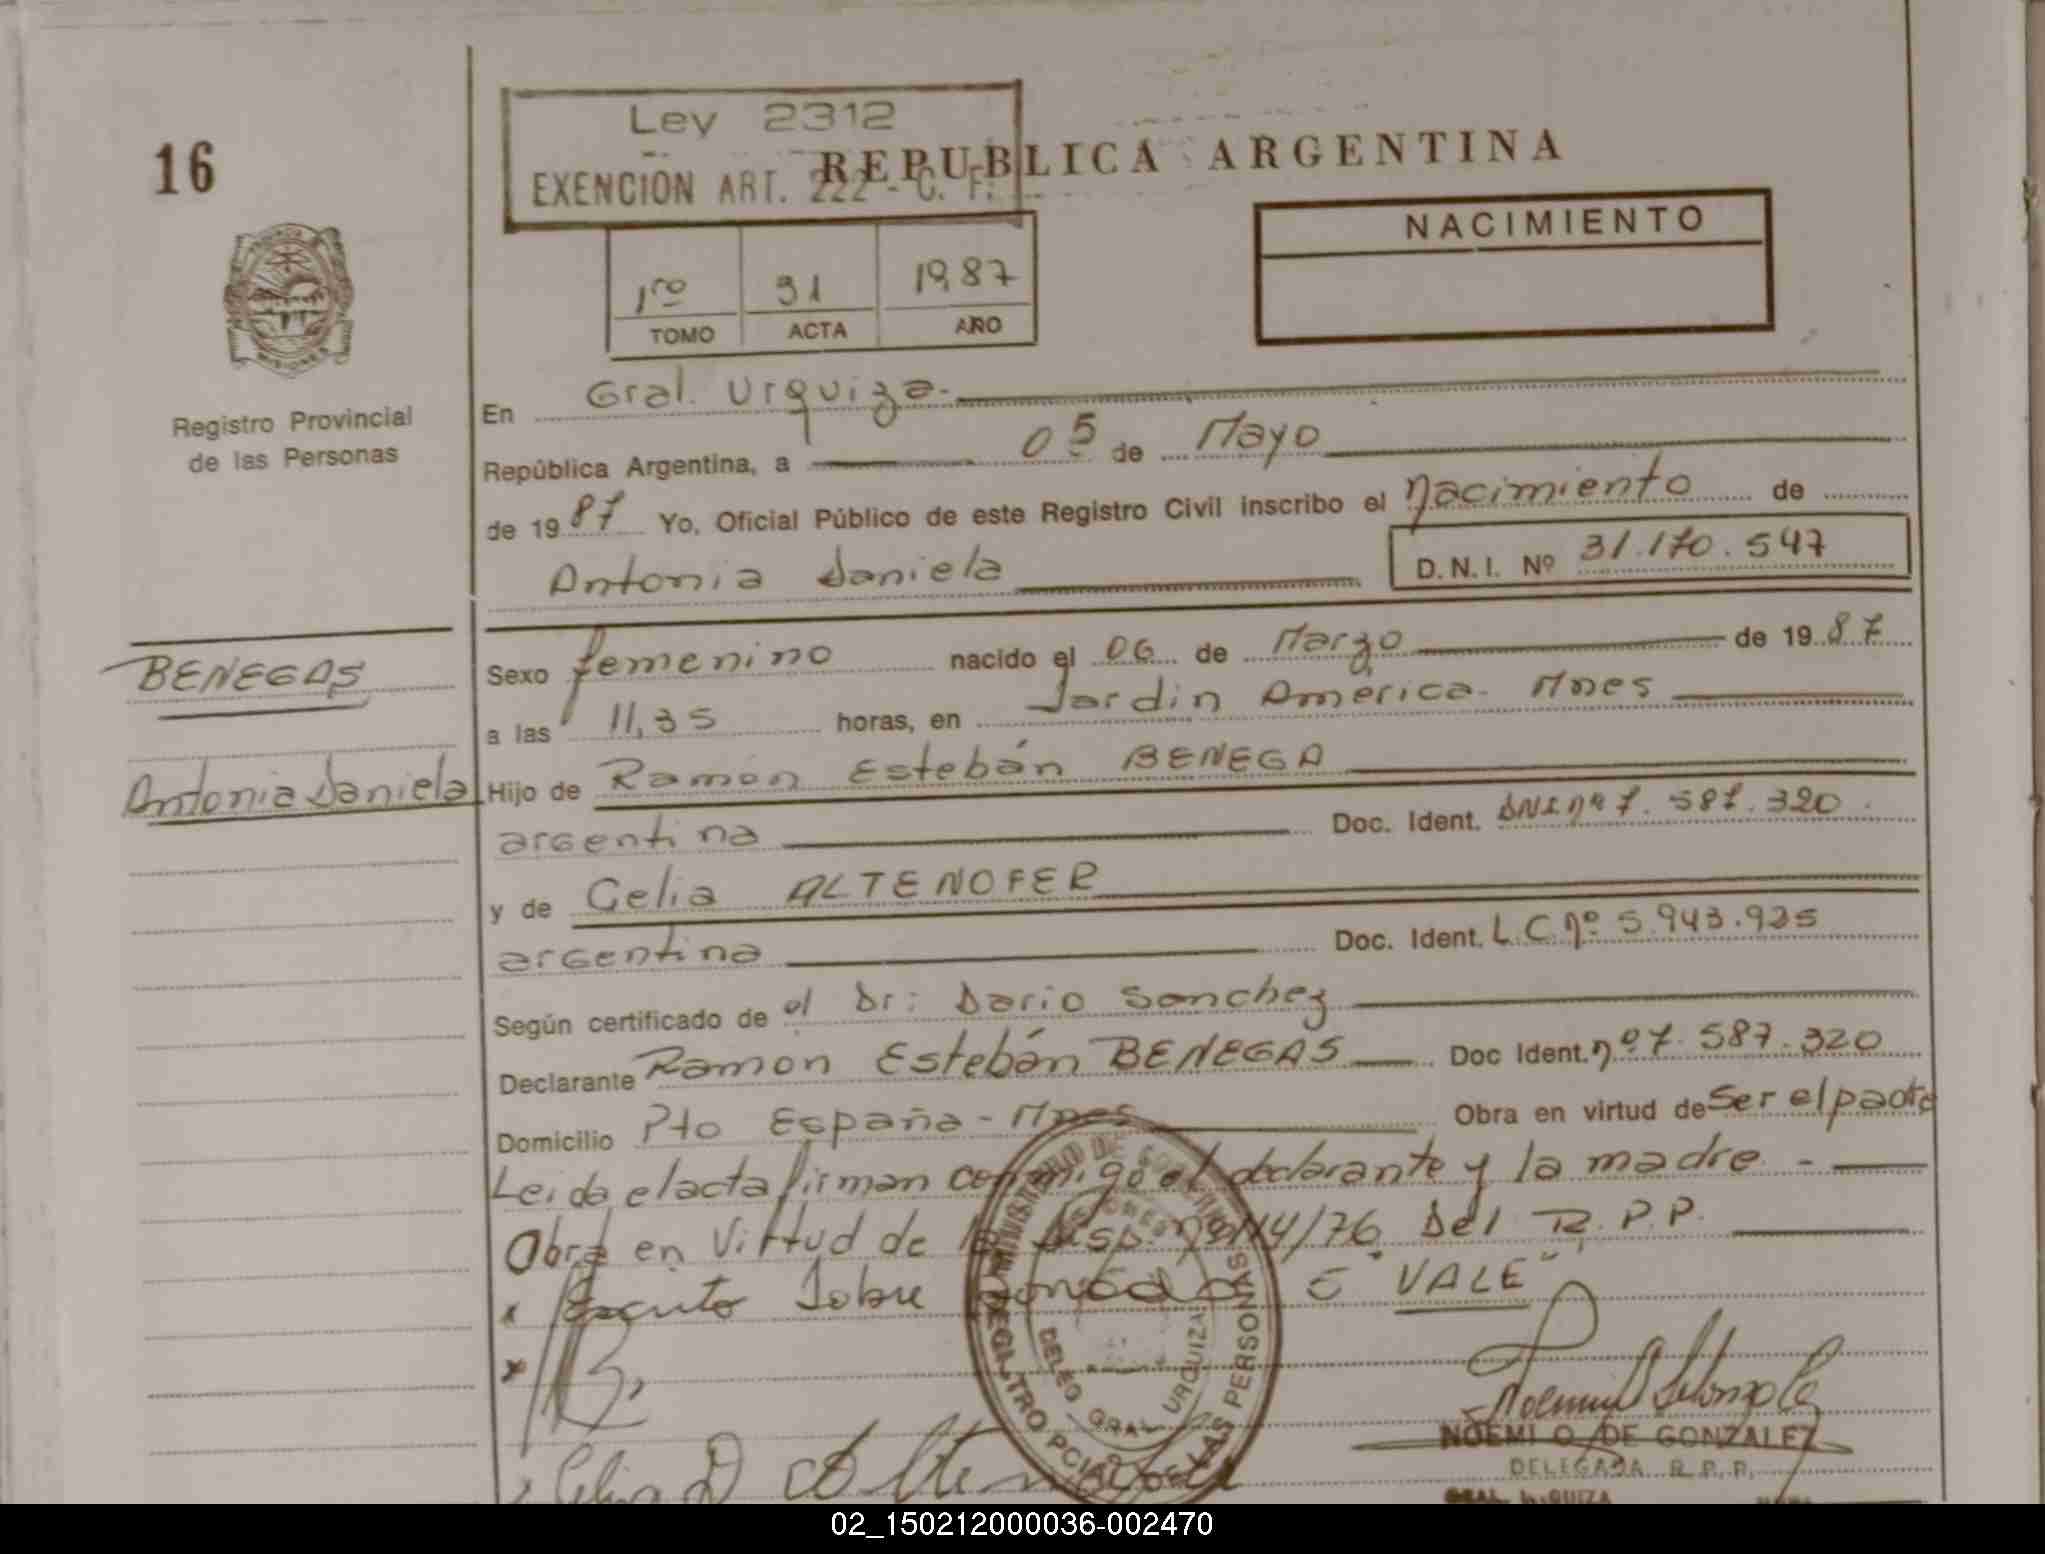 16
Ley 2312
EXENCION ART. 222 - C. F.
REPUBLICA ARGENTINA
NACIMIENTO
1ro 31 1987
TOMO ACTA AÑO
MISIONES
Registro Provincial
de las Personas
En Gral. Urquiza.
República Argentina, a 05 de Mayo
de 1987 Yo, Oficial Público de este Registro Civil inscribo el Nacimiento de
Antonia Daniela D.N.I. Nº 31.170.547
BENEGAS
Antonia Daniela
Sexo femenino nacido el 06 de Marzo de 1987
a las 11,35 horas, en Jardin America. Mnes
Hijo de Ramón Estebán BENEGA
argentina Doc. Ident. DNI nº 7.587.320.
y de Celia ALTENOFER
argentina Doc. Ident. L.C. nº 5.943.925
Según certificado de el Dr: Dario Sanchez
Declarante Ramón Estebán BENEGAS Doc Ident. nº 7.587.320
Domicilio Pto España - Mnes Obra en virtud de Ser el padre
Leida el acta firman conmigo el declarante y la madre. -
Obra en Virtud de la Disp. nº 14/76 Del R.P.P.
Escrito Sobre S "VALE"
MINISTERIO DE
MISIONES
REGISTRO PCIAL DE LAS PERSONAS
DELEG GRAL URQUIZA
NOEMI O. DE GONZALEZ
DELEGADA R.P.P.
GRAL. URQUIZA
02_150212000036-002470